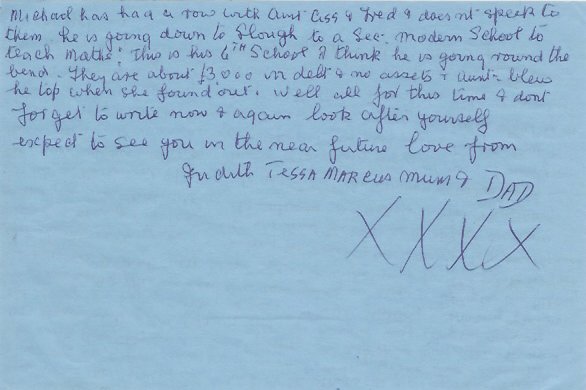 Michael has had a row with Aunt Ciss & Fred & doesnt speak to
them he is going down to Slough to a Sec. Modern School to
teach Maths. This is his 6TH School I think he is going round the
bend. They are about £3,000 in debt & no assets & Aunt blew
he top when she found out. Well all for this time & dont
forget to write now & again look after yourself
expect to see you in the near future love from
Judith TESSA MARCUS Mum & DAD
XXXX